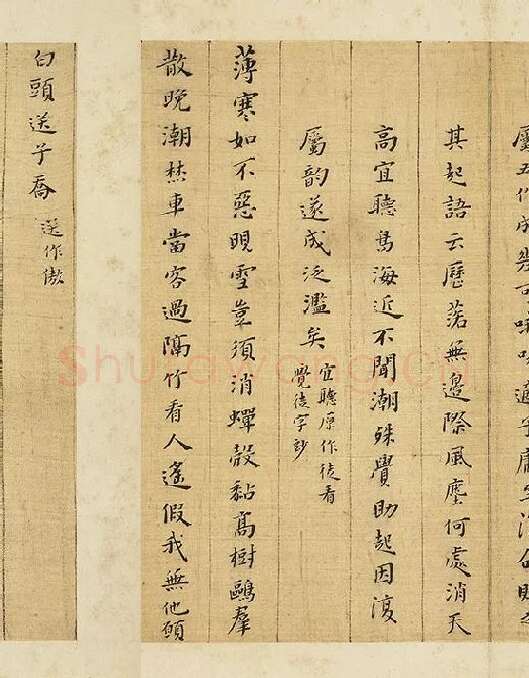 其起語云歷落無邊際風塵何處消天
高宜聽海近不聞潮殊覺助起因復
屬韵遂成泛濫矣
宜聽原作徒看
覺徒字妙
薄寒如不惡晛雪豈須消蟬殼黏高樹鷗羣
散晚潮焚車當客過隔竹看人遙假我無他願
白頭送子喬
送作傲